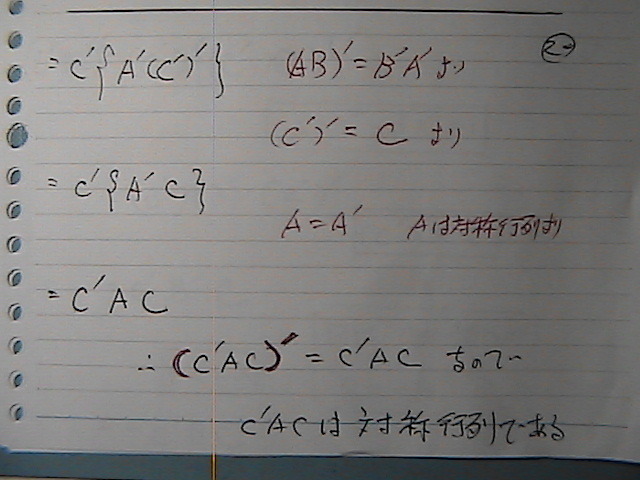 ②
= C'{A'(C')'} (AB)' = B'A' より
(C')' = C より
= C'{A'C}
A = A' Aは対称行列より
= C'AC
∴ (C'AC)' = C'AC なので
C'ACは対称行列である